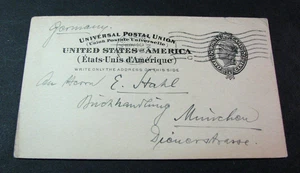 Germany.
UNIVERSAL POSTAL UNION
(Union Postale Universelle)
UNITED STATES OF AMERICA
(États-Unis d'Amérique)
WRITE ONLY THE ADDRESS ON THIS SIDE
An Herrn E. Hahl
Buchhandlung
München
Dienerstrasse.